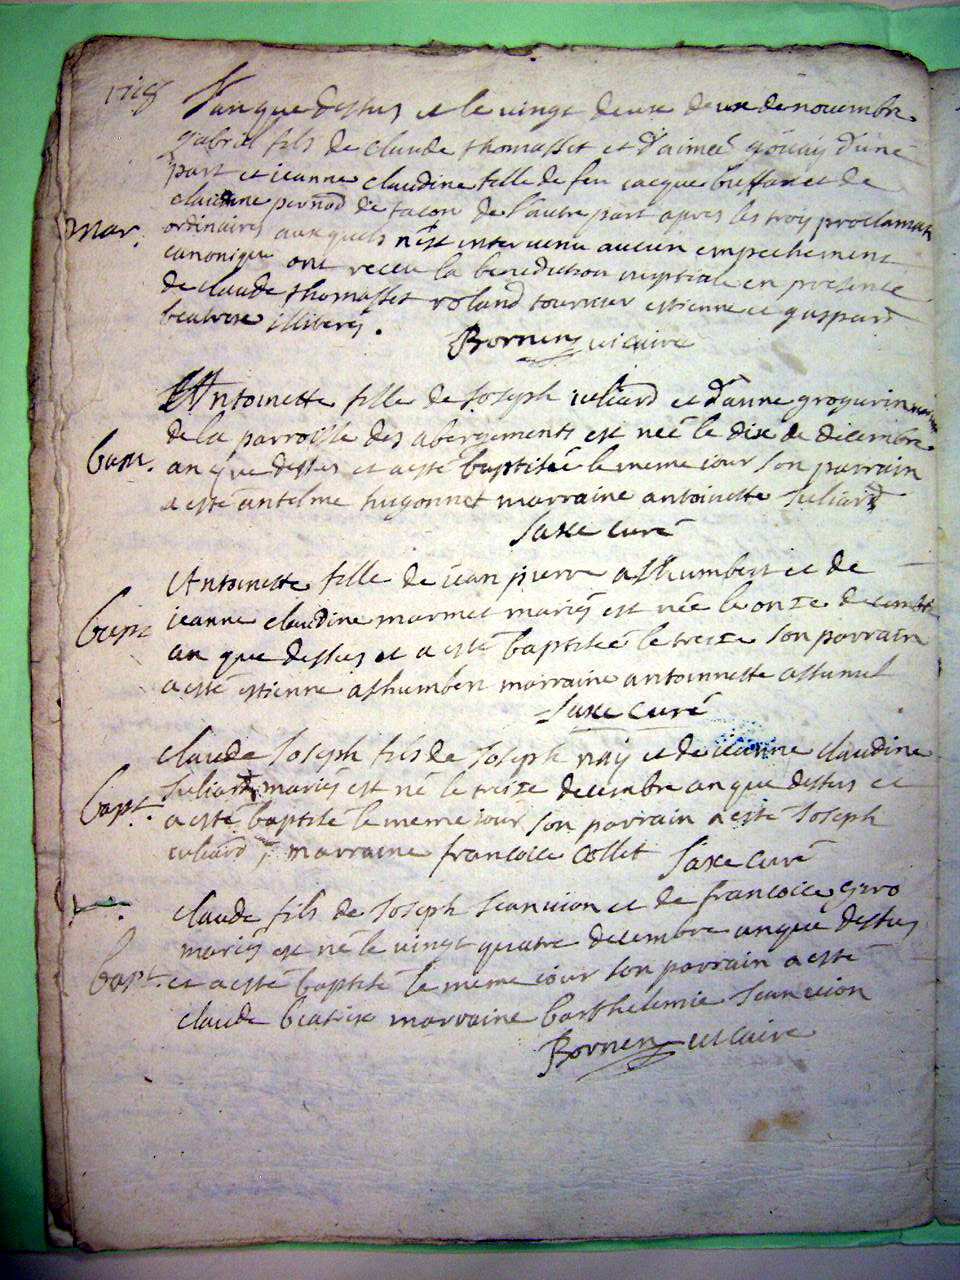 1718
L'an que dessus et le vingt deuxe de novembre
gabriel fils de claude thomasset et d'aimeé d'une
part et jeanne claudine fille de feu jacque buffavet de
claudine de l'autre part apres les troy proclamat
mar. ordinaires auxquels n'est intervenu aucun empechement
canonique ont receu la benediction nuptiale en presence
de claude thomasset roland tournier estienne et gaspard
beatrixe illiteréz.
Bornen vicaire
Antoinette fille de Joseph iuliard et d'anne
de la parroisse des abergements est neé le dixe de decembre
bapt. an que dessus et a esté baptiseé le meme iour son parrain
a esté antelme hugonnet marraine antoinette Juliard
Saxe curé
Antoinette fille de iean pierre asthumbert et de
bapt ieanne claudine marmet mariés est neé le onze decembre
an que dessus et a esté baptiseé le treize son parrain
a esté estienne asthumbert marraine antoinnette
Saxe curé
claude Joseph fils de Joseph nay et de ieanne claudine
bapt. Juliard mariés est né le treize decembre an que dessus et
a esté baptisé le meme iour son parrain a esté Joseph
iuliard, marraine francoise collet Saxe curé
claude fils de Joseph Jeanvion et de francoise giro
mariés est né le vingt quatre decembre an que dessus
bapt. et a esté baptisé le meme iour son parrain a esté
claude beatrixe marraine barthelemie Jeanvion
Bornen vicaire